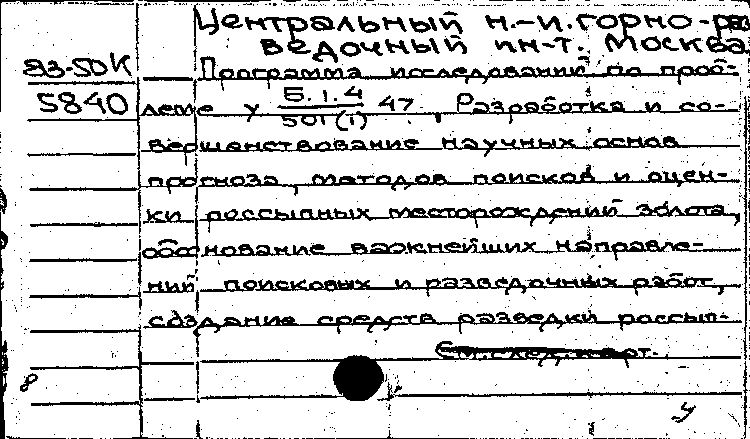 Центральный н.-и. горно-раз
ведочный ин-т. Москва
83-50К Программа исследований по проб-
5840 леме у 5.1.4/501(1) 47. Разработка и со-
вершенствование научных основ
прогноза, методов поисков и оцен-
ки россыпных месторождений золота,
обоснование важнейших направле-
ний поисковых и разведочных работ,
создание средств разведки россып-
См. след. карт.
8
у